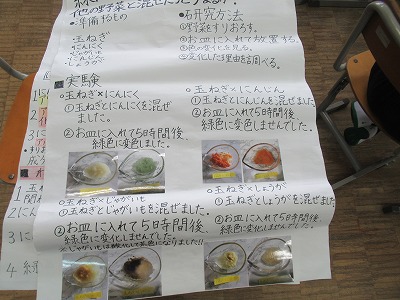 他の野菜と混ぜたらどうなる?
・準備するもの
玉ねぎ
にんにく
じゃがいも
にんじん
しょうが
・研究方法
①野菜をすりおろす。
②お皿に入れて放置する。
③色の変化を見る。
④変化した理由を調べる。
実験
○玉ねぎ×にんにく
①玉ねぎとにんにくを混ぜました。
②お皿に入れて5時間後、
緑色に変色しました。
○玉ねぎ×にんじん
①玉ねぎとにんじんを混ぜました。
②お皿に入れて5時間後、
緑色に変色しませんでした。
○玉ねぎ×じゃがいも
①玉ねぎとじゃがいもを混ぜました。
②お皿に入れて5時間後、
緑色に変化しませんでした。
じゃがいもは酸化して茶色になりました!!
○玉ねぎ×しょうが
①玉ねぎとしょうがを混ぜました。
②お皿に入れて5時間後、
緑色に変化しませんでした。
1 玉
2 にん
3 に
4 緑